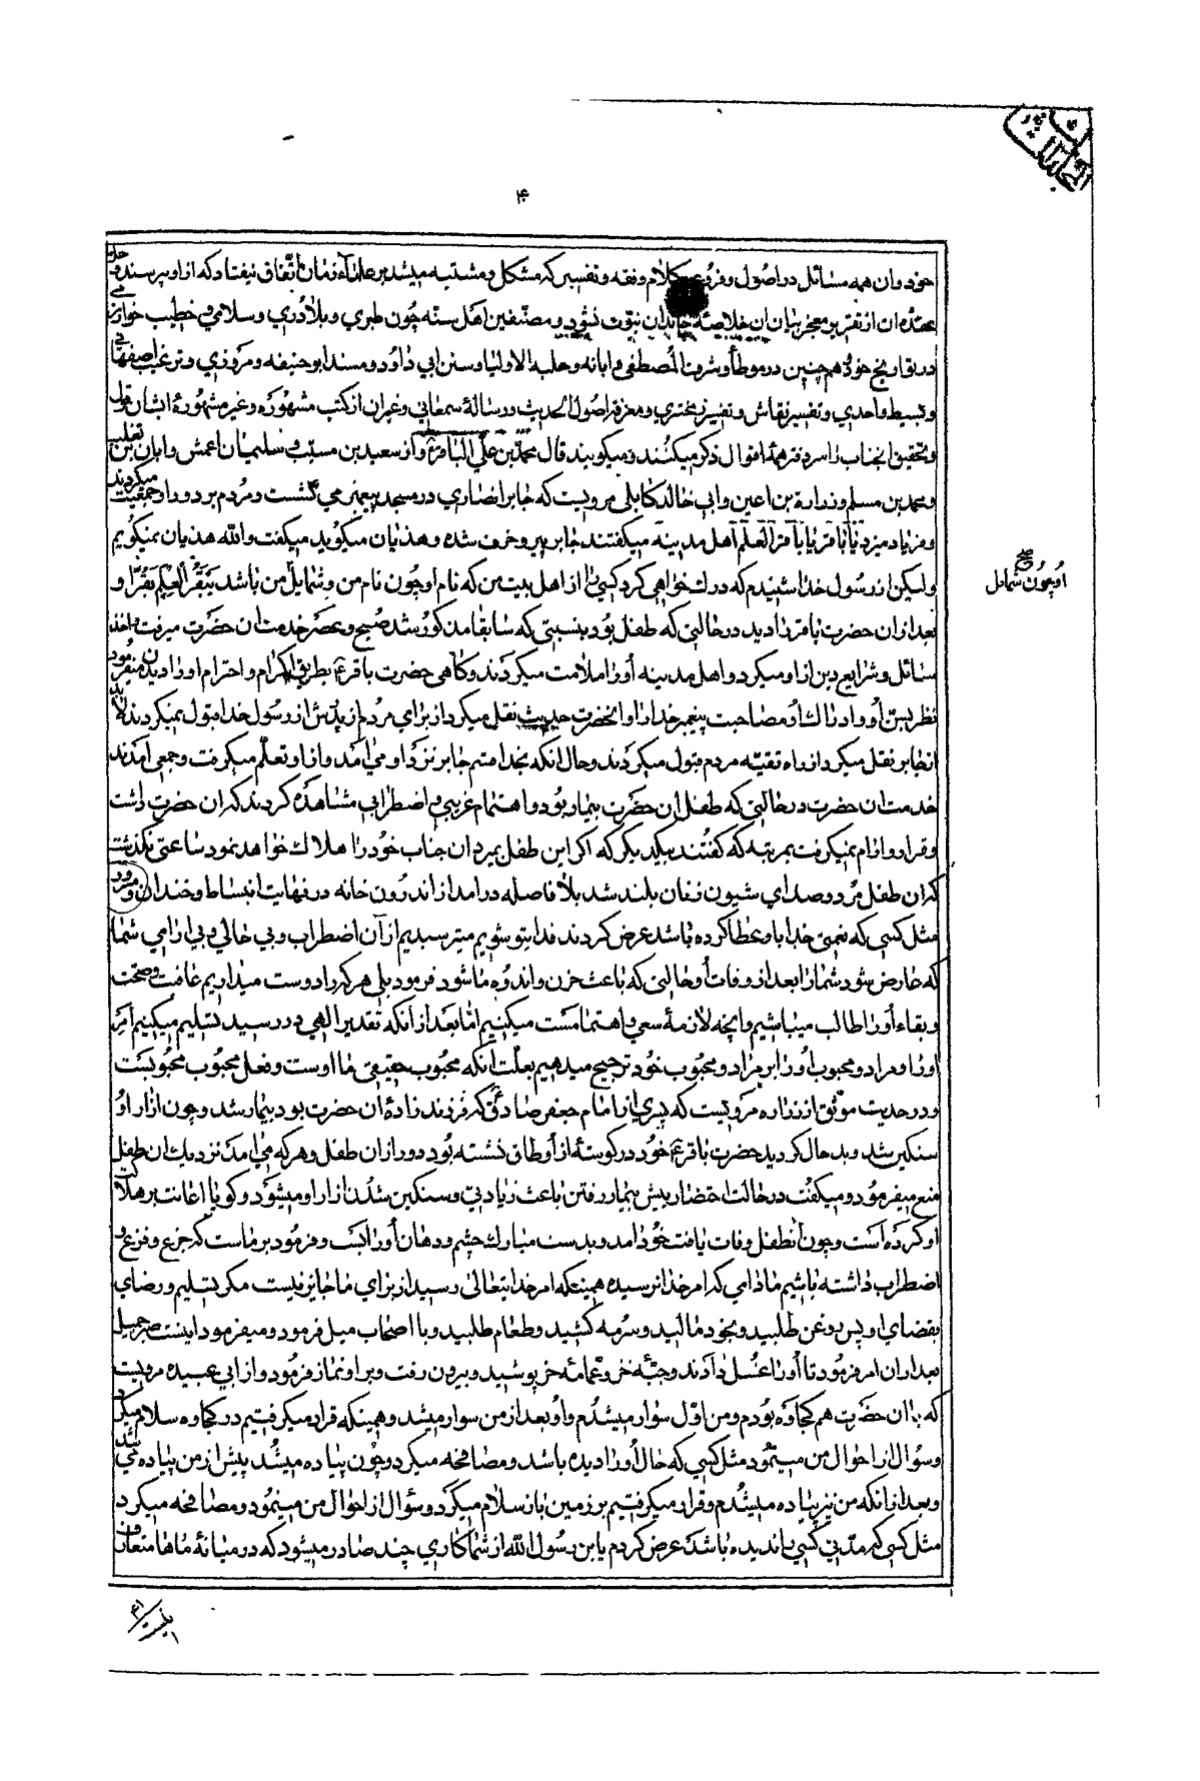 ۴
خود وان همه مسائل در اصول و فروع کلام و فقه و تفسیر که مشکل و مشتبه میشد بر علماء زمان اتفاق نیفتاد که از او پرسند و حل
عقده ان از تقریر معجز بنیان ان خلاصهٔ خاندان نبوت نشود و مصنفین اهل سنه چون طبری و بلاذری و سلامی و خطیب خوارزمی
در تواریخ خود و همچنین در موطأ و شرف المصطفی و ابانه و حلیة الاولیا و سنن ابی داود و مسند ابو حنیفه و مروزی و ترغیب اصفهانی
و بسیط واحدی و تفسیر نقاش و تفسیر زمخشری و معرفة اصول الحدیث و رسالهٔ سمعانی و غیران از کتب مشهوره و غیر مشهورهٔ ایشان قول
و تحقیق انجناب را سر دفتر همهٔ اقوال ذکر میکنند و میگویند قال محمد بن علی الباقر و از سعید بن مسیب و سلیمان اعمش و ابان بن تغلب
و محمد بن مسلم و زرارة بن اعین و ابی خالد کابلی مرویست که جابر انصاری در مسجد پیغمبر می نشست و مردم بر دور او جمعیت میکردند
و فریاد میزد یا باقر یا باقر العلم اهل مدینه میگفتند جابر پیر و خرف شده و هذیان میگوید میگفت والله هذیان نمیگویم
و لیکن از رسول خدا شنیدم که درک خواهی کرد کسی را از اهل بیت من که نام او چون نام من و شمایل من باشد یبقر العلم بقرا و
او چون شمائل
صح
بعد از ان حضرت باقر را دید در حالتی که طفل بود بنسبتی که سابقا مذکور شد صبح و عصر خدمت ان حضرت میرفت و اخذ
مسائل و شرایع دین از او میکرد و اهل مدینه او را ملامت میکردند و گاهی حضرت باقر بطریق اکرام و احترام او را دیدن میفرمود
نظر بسن او و ادراک او مصاحبت پیغمبر خدا را و انحضرت حدیث نقل میکرد از برای مردم از پدرش از رسول خدا قبول نمیکردند لابد
از جابر نقل میکرد از راه تقیه مردم قبول میکردند و حال انکه بخدا قسم جابر نزد او می امد و از او تعلم میگرفت و جمعی امدند
خدمت ان حضرت در حالتی که طفل ان حضرت بیمار بود و اهتمام غریبی و اضطرابی مشاهده کردند که ان حضرت داشت
و قرار و ارام نمیگرفت بمرتبه که گفتند بیکدیگر که اگر این طفل بمیرد ان جناب خود را هلاک خواهد نمود ساعتی نگذشت
که ان طفل مرد و صدای شیون و فغان بلند شد بلا فاصله در امد از اندرون خانه در نهایت انبساط و خندان و مسرور
مثل کسی که نعمتی خدا باو عطا کرده باشد عرض کردند فدایتو شویم میترسیدیم از آن اضطراب و بی حالی و بی ارامی شما
که عارض شود شما را بعد از وفات او حالتی که باعث حزن و اندوه ما شود فرمود بلی هر که را دوست میداریم عافیت و صحت
و بقاء او را طالب میباشیم و انچه لازمهٔ سعی و اهتمامست میکنیم اما بعد از انکه تقدیر الهی در رسید تسلیم میکنیم امر
او را و مراد و محبوب او را بر مراد و محبوب خود ترجیح میدهیم بعلت انکه محبوب حقیقی ما اوست و فعل محبوب محبوبست
و در حدیث موثق از زراره مرویست که پسری از امام جعفر صادق که فرزند زادهٔ ان حضرت بود بیمار شد و چون ازار او
سنگین شد و بد حال گردید حضرت باقر خود در گوشهٔ از اوطاق نشسته بود دور از ان طفل و هر که می امد نزدیک ان طفل
منع میفرمود و میگفت در حالت احتضار پیش بیمار رفتن باعث زیادتی و سنگین شدن ازار او میشود و گویا اعانت بر هلاکت
او کرده است و چون انطفل وفات یافت خود امد و بدست مبارک چشم و دهان او را بست و فرمود بر ماست که جزع و فزع و
اضطراب داشته باشیم مادامی که امر خدا نرسیده همینکه امر خدایتعالی رسید از برای ما جایز نیست مگر تسلیم و رضای
بقضای او پس روغن طلبید و بخود مالید و سرمه کشید و طعام طلبید و با اصحاب میل فرمود و میفرمود اینست صبر جمیل
بعد از ان امر فرمود تا او را غسل دادند و جبّهٔ خز و عمامهٔ خز پوشید و بیرون رفت و بر او نماز فرمود و از ابی عبیده مرویست
که با ان حضرت هم کجاوه بودم و من اول سوار میشدم و او بعد از من سوار میشد و همینکه قرار میگرفتیم در کجاوه سلام میکرد
و سؤال از احوال من مینمود مثل کسی که حال او را دیده باشد و مصافحه میکرد و چون پیاده میشد پیش از من پیاده می شد
و بعد از انکه من نیز پیاده میشدم و قرار میگرفتیم بر زمین باز سلام میکرد و سؤال از احوال من مینمود و مصافحه میکرد
مثل کسی که مدتی کسی را ندیده باشد عرض کردم یابن رسول الله از شما کاری چند صادر میشود که در میانهٔ ماها متعارف